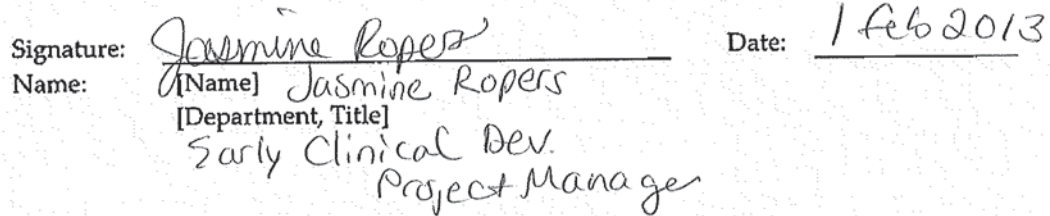 Signature: Jasmine Ropers Date: 1 Feb 2013
Name: [Name] Jasmine Ropers
[Department, Title]
Early Clinical Dev.
Project Manager